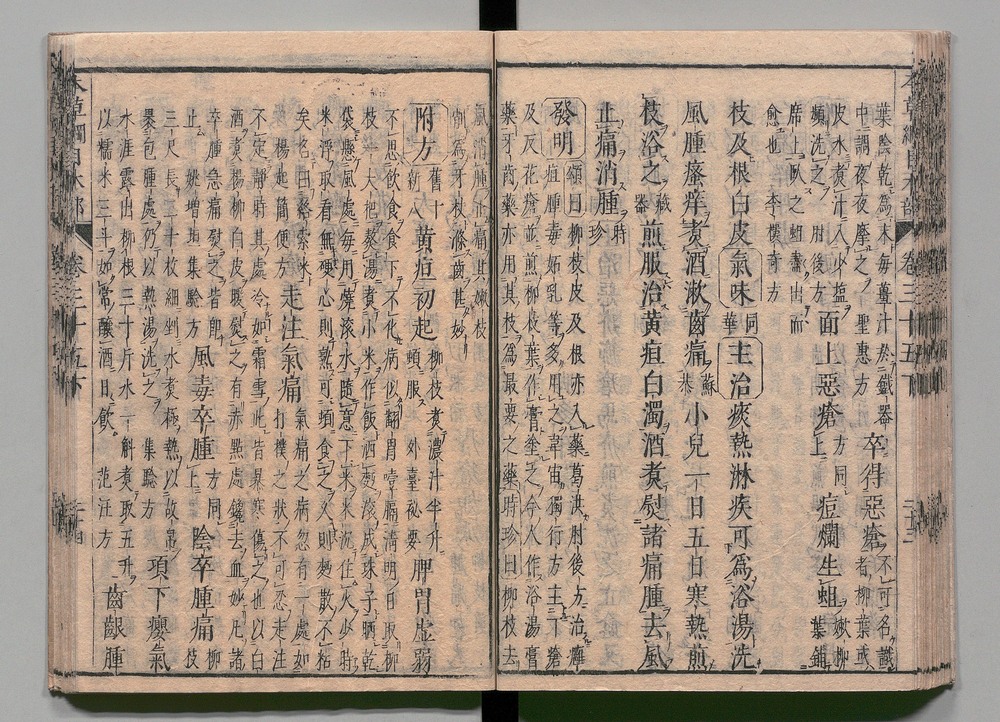 葉陰乾為末每薑汁於鐵器
中調夜夜摩之 聖惠方 卒得惡瘡 不可名識者柳葉或
皮水煮汁入少塩
頻洗之 肘後方 面上惡瘡 上方同 痘爛生蛆 嫩柳葉鋪
席上臥之蛆盡出而
愈也 李樓奇方
枝及根白皮 氣味 同華 主治 痰熱淋疾可為浴湯洗
風腫瘙痒煮酒漱齒痛 蘇恭 小兒一日五日寒熱煎
枝浴之 藏器 煎服治黃疸白濁酒煮熨諸痛腫去風
止痛消腫 時珍
發明 頌曰柳枝皮及根亦入藥葛洪肘後方治癰
疽腫毒妬乳等多用之韋宙獨行方主丁瘡
及反花瘡並煎柳枝葉作膏塗之今人作浴湯膏
藥牙齒藥亦用其枝為最要之藥時珍曰柳枝去
風消腫止痛其嫩枝
削為牙枝滌齒甚妙
附方 舊十新八 黃疸初起 柳枝煮濃汁半升頓服 外臺秘要 脾胃虛弱
不思飲食食下不化病似翻胃噎膈清明日取柳
枝一大把熬湯煮小米作飯洒麪滾成珠子晒乾
袋懸風處每用燒滾水隨意下米米沉住火少時
米浮取看無硬心則熟可頓食之久則麪散不粘
矣名曰絡索米
楊起簡便方 走注氣痛 氣痛之病忽有一處如打撲之狀不可忍走注
不定靜時其處冷如霜雪此皆暴寒傷之也以白
酒煮楊柳白皮暖熨之有赤點處鑱去血妙凡諸
卒腫急痛熨之皆即
止 姚增垣集驗方 風毒卒腫 上方同 陰卒腫痛 柳枝
三尺長二十枚細剉水煮極熱以故帛
裹包腫處仍以熱湯洗之 集驗方 項下癭氣
水涯露出柳根三十斤水一斛煮取五升
以糯米三斗如常釀酒日飲 范汪方 齒齦腫
本草綱目木部
卷三十五下